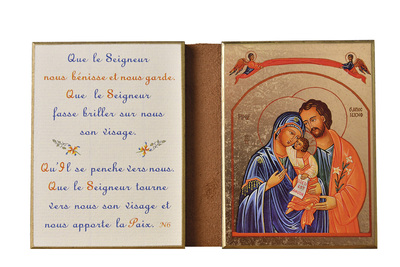 Que le Seigneur
nous bénisse et nous garde.
Que le Seigneur
fasse briller sur nous
son visage.
Qu'Il se penche vers nous.
Que le Seigneur tourne
vers nous son visage et
nous apporte la Paix.